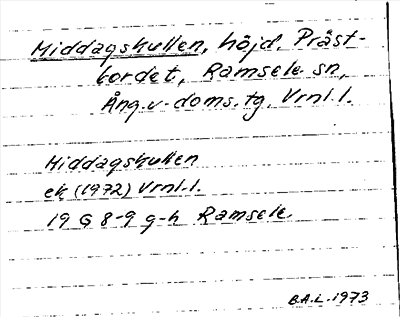 Middagskullen, höjd, Präst-
bordet, Ramsele sn,
Ång.v. doms.tg. Vrnl.l.
Middagskullen
ek (1972) Vrnl.l.
19 G 8-9 g-h Ramsele.
B.A.L. 1973